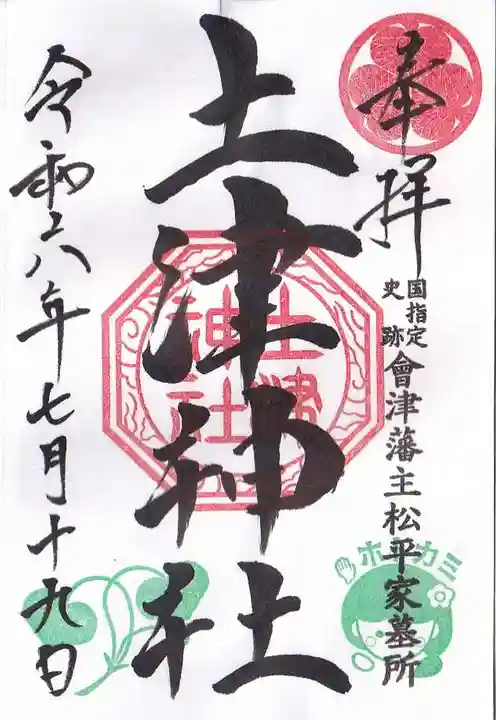 奉拝
国指定
史跡
會津藩主松平家墓所
土津神社
土津
神社
令和六年七月十九日
ホトカミ